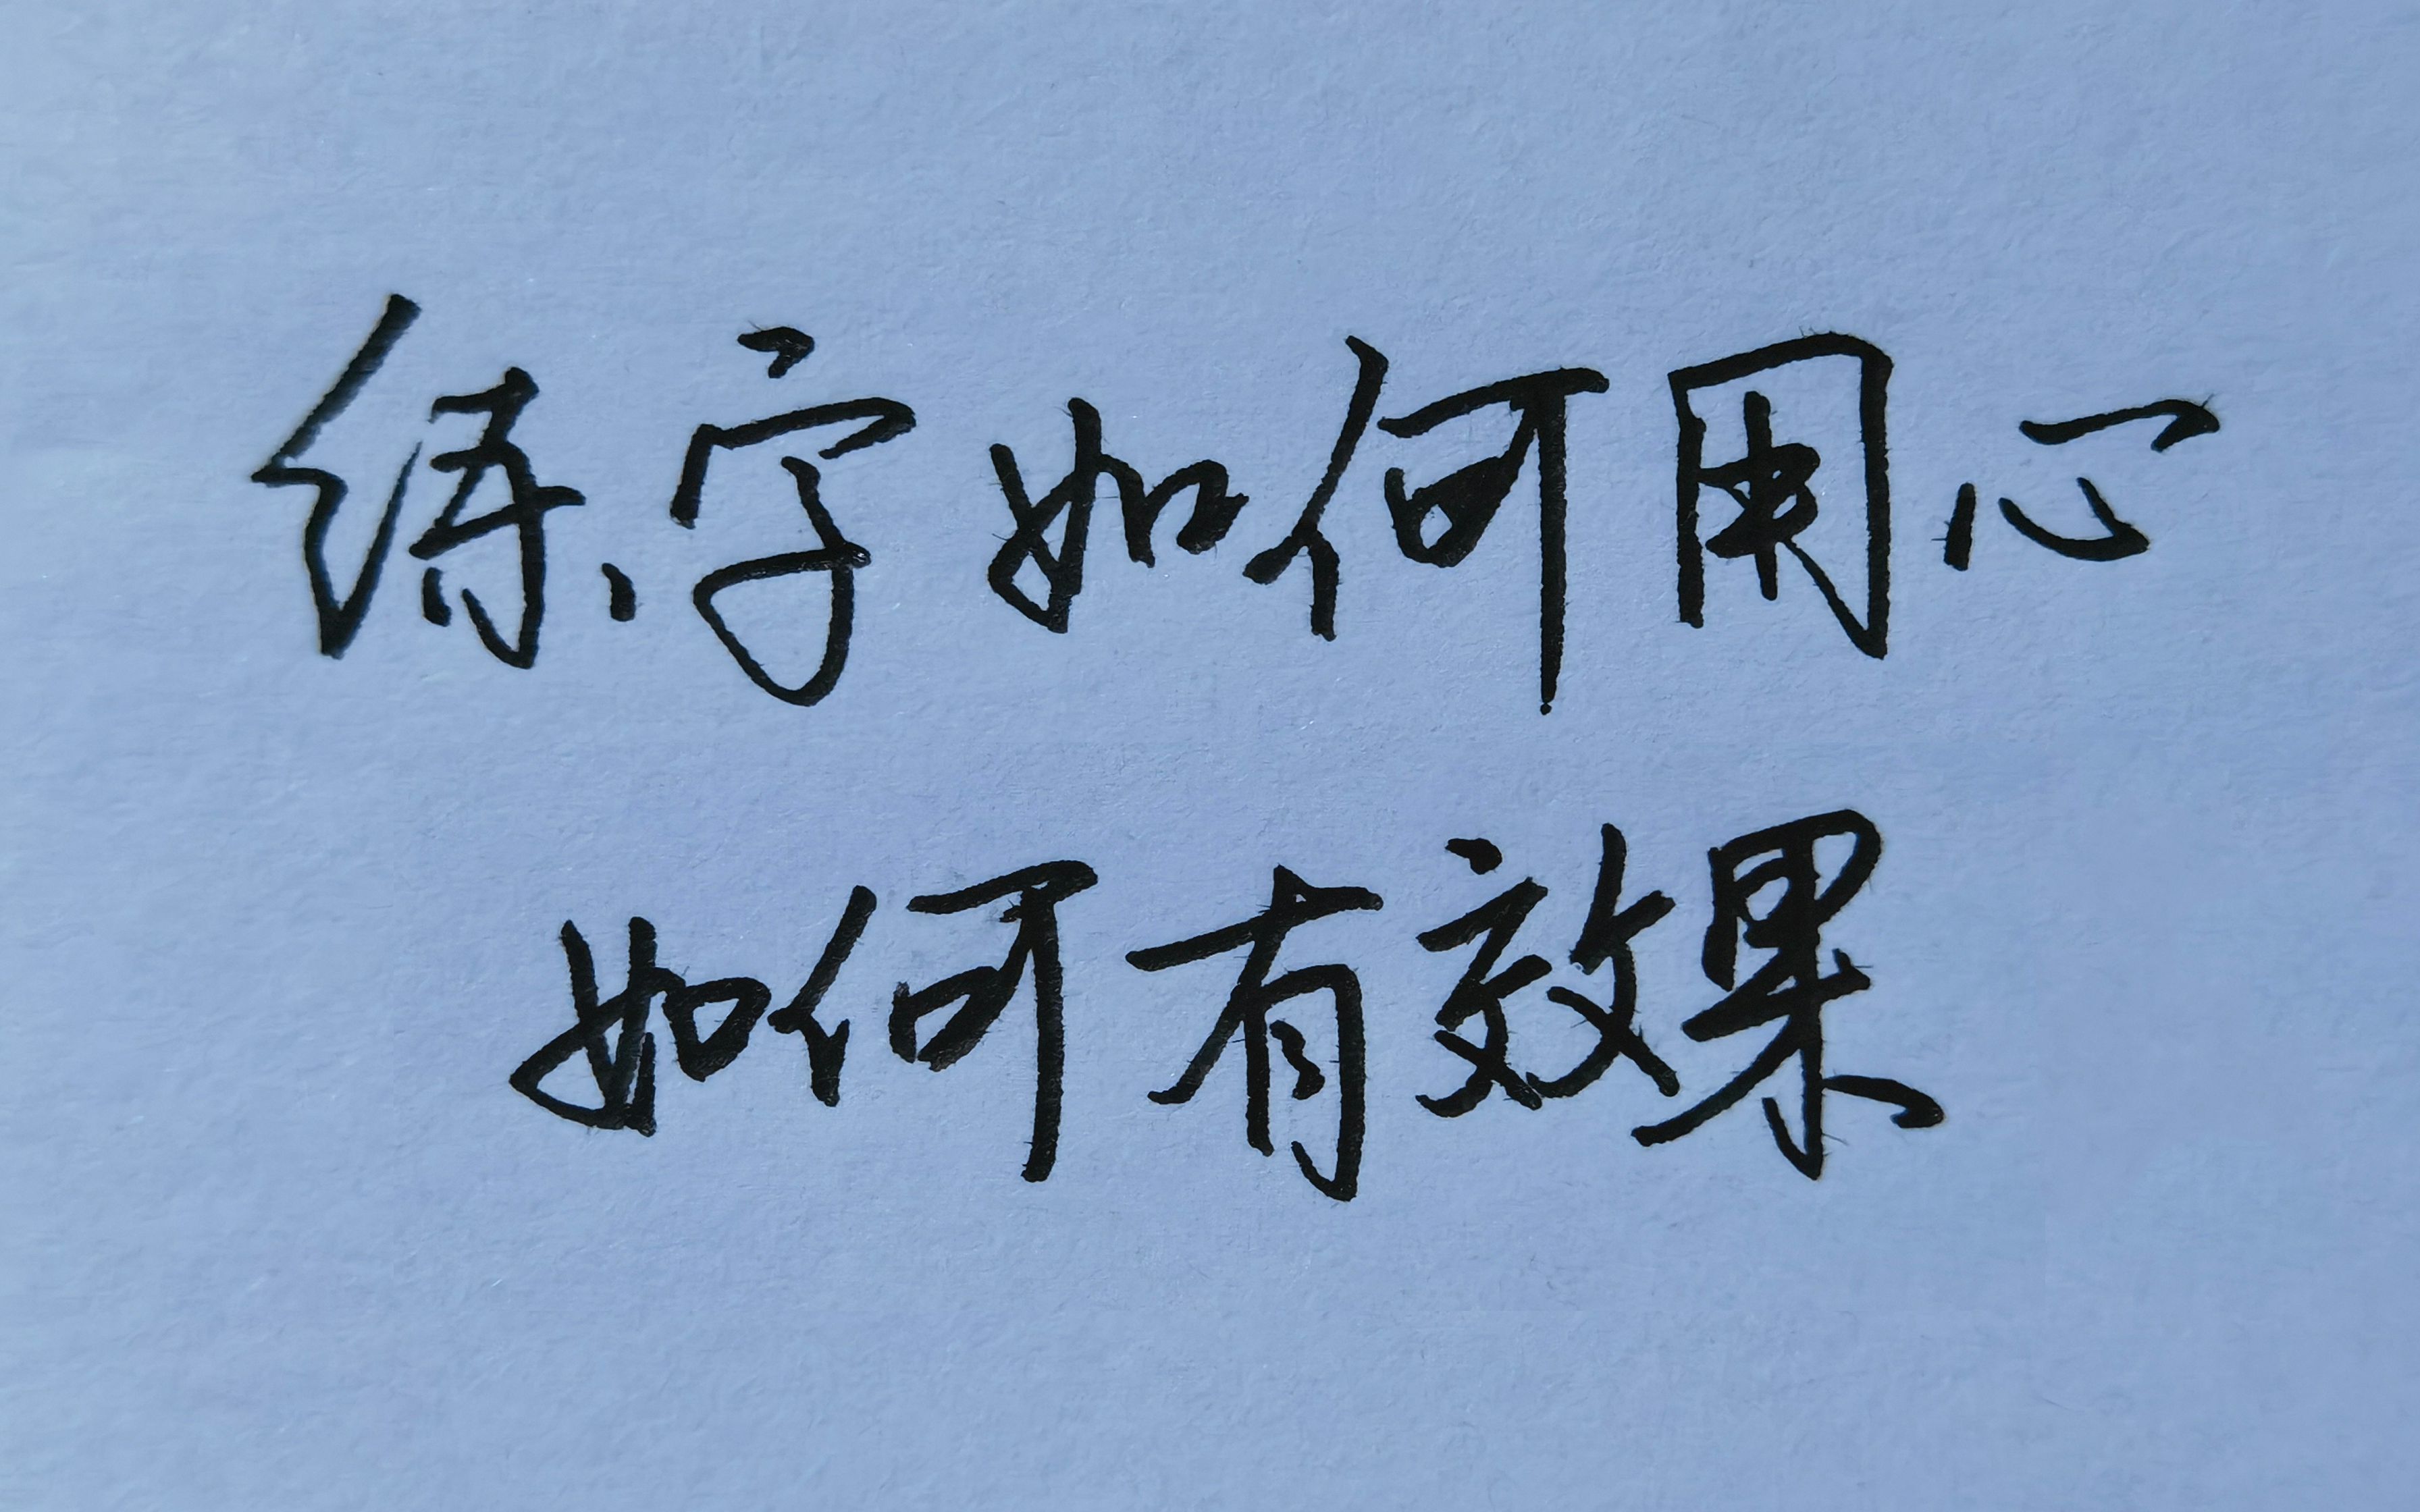 练字如何用心
如何有效果